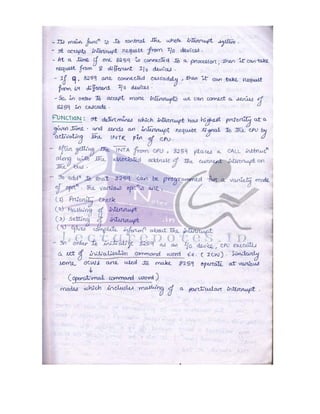 - Its main func" is to control the whole interrupt system.
- It accepts interrupt request from I/o devices.
- At a time if one 8259 is connected to a processor, then it can take
request from 8 different I/o devices.
- If 9, 8259 are connected cascadely, then it can take request
from 64 different I/o devices.
- So in order to accept more interrupts we can connect a series of
8259 in cascade.
FUNCTION: It determines which interrupt has highest priority at a
given time and sends an interrupt request signal to the CPU by
activating the INTR pin of CPU.
- After getting the INTA from CPU, 8259 places a CALL instruc"
along with the associated address of the current interrupt on
the bus.
- In add" to that 8259 can be programmed in a variety mode
of opt". The various opt"s are,
(1) Priority check
(2) Masking of interrupt
(3) Setting of interrupt
(4) Gives complete inform" about the interrupt
- In order to initialize 8259 as an I/o device, CPU executes
a set of initialisation command word i.e. (ICW). Similarly
some OCWs are used to make 8259 operate at various
(operational command word)
modes which includes masking of a particular interrupt.
LectureNotes.in